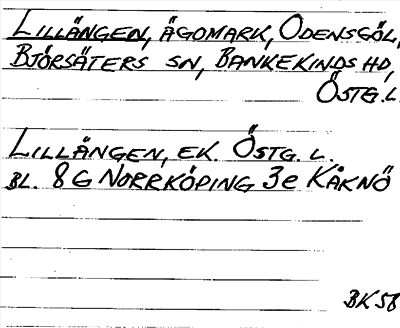 LILLÄNGEN, ÄGOMARK, ODENSGÖL,
BJÖRSÄTERS SN, BANKEKINDS HD,
ÖSTG.L.
LILLÄNGEN, EK. ÖSTG. L.
BL. 8G NORRKÖPING 3e KÅKNÖ
BK58